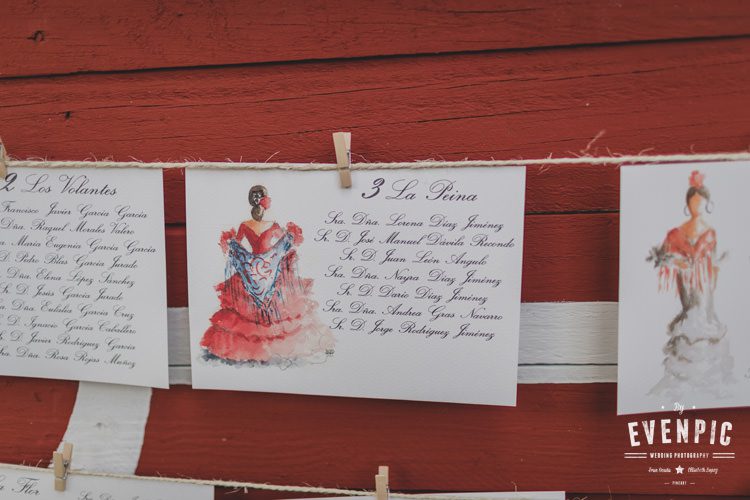 2 Los Volantes
Francisco Javier García García
Dña. Raquel Morales Valero
María Eugenia García García
D. Pedro Blas García Jurado
Dña. Elena López Sánchez
Sr. D. Jesús García Jurado
Dña. Eulalia García Cruz
D. Ignacio García Caballero
D. Javier Rodríguez García
Dña. Rosa Rojas Muñoz
3 La Peina
Sra. Dña. Lorena Díaz Jiménez
Sr. D. José Manuel Dávila Recondo
Sr. D. Juan León Angulo
Sra. Dña. Nayra Díaz Jiménez
Sr. D. Darío Díaz Jiménez
Sra. Dña. Andrea Gras Navarro
Sr. D. Jorge Rodríguez Jiménez
La Flor
By
EVENPIC
WEDDING PHOTOGRAPHY